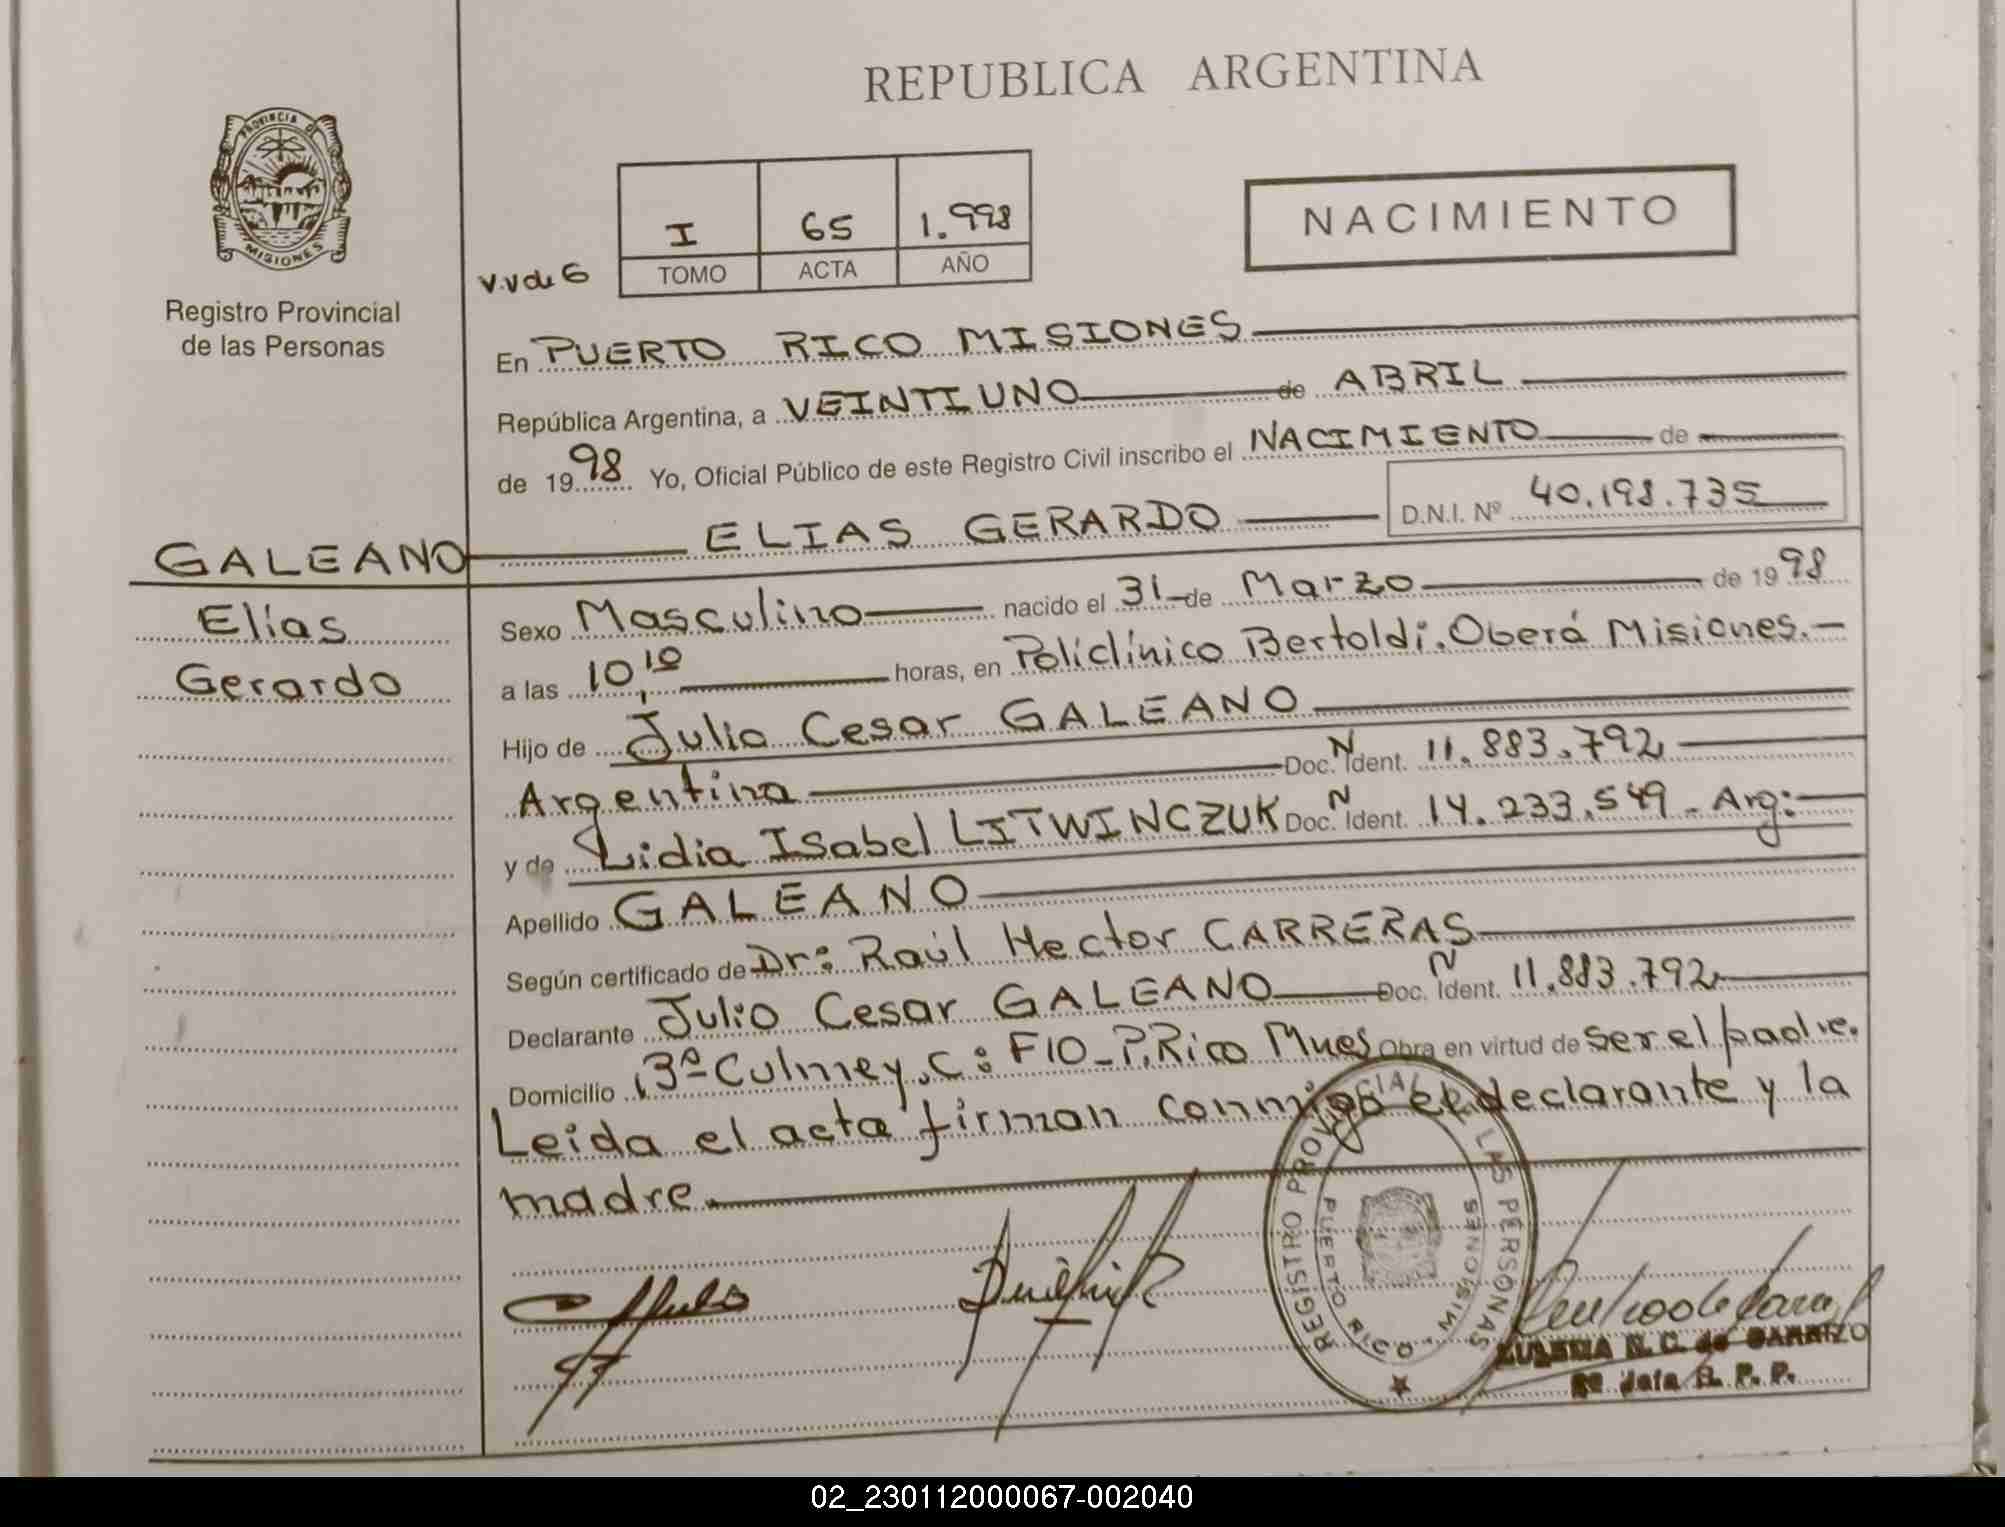 REPUBLICA ARGENTINA
PROVINCIA DE MISIONES
Registro Provincial
de las Personas
V.V du 6
I 65 1.998
TOMO ACTA AÑO
NACIMIENTO
En PUERTO RICO MISIONES
República Argentina, a VEINTIUNO de ABRIL
de 1998 Yo, Oficial Público de este Registro Civil inscribo el NACIMIENTO de
GALEANO ELIAS GERARDO D.N.I. Nº 40.198.735
Elías
Gerardo
Sexo Masculino nacido el 31 de Marzo de 1998
a las 10,10 horas, en Policlínico Bertoldi. Oberá Misiones.-
Hijo de Julio Cesar GALEANO
Argentina Doc. N Ident. 11.883.792
y de Lidia Isabel LITWINCZUK Doc. N Ident. 14.233.549. Arg:
Apellido GALEANO
Según certificado de Dr: Raúl Hector CARRERAS
Declarante Julio Cesar GALEANO Doc. N Ident. 11.883.792
Domicilio 3º Culmey. C: F10_P. Rico Mnes Obra en virtud de ser el padre.
Leida el acta firman conmigo el declarante y la
madre.
REGISTRO PROVINCIAL DE LAS PERSONAS
PUERTO RICO - MISIONES
de CARRIZO
Jefa R. P. P.
02_230112000067-002040